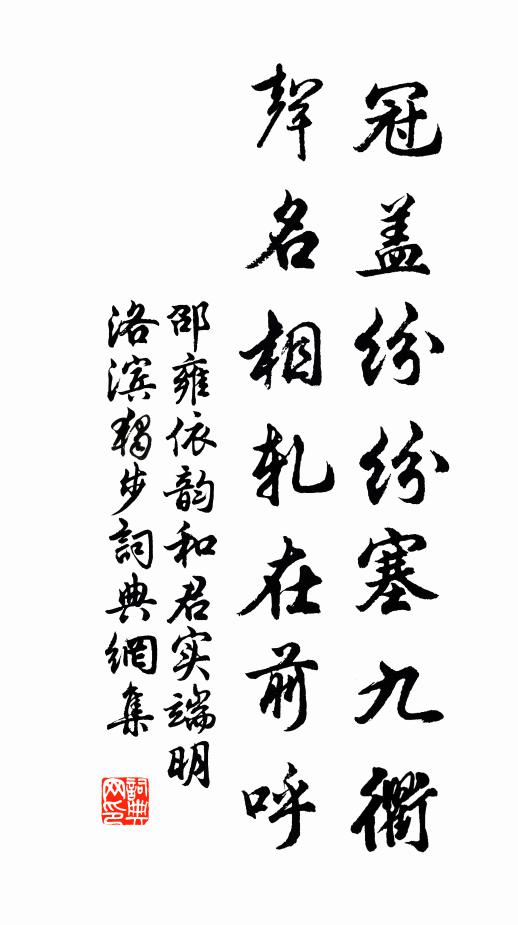 冠盖纷纷塞九衢
声名相轧在前呼
邵雍依韵和君实端明
洛滨独步詞典網集
詞典网印